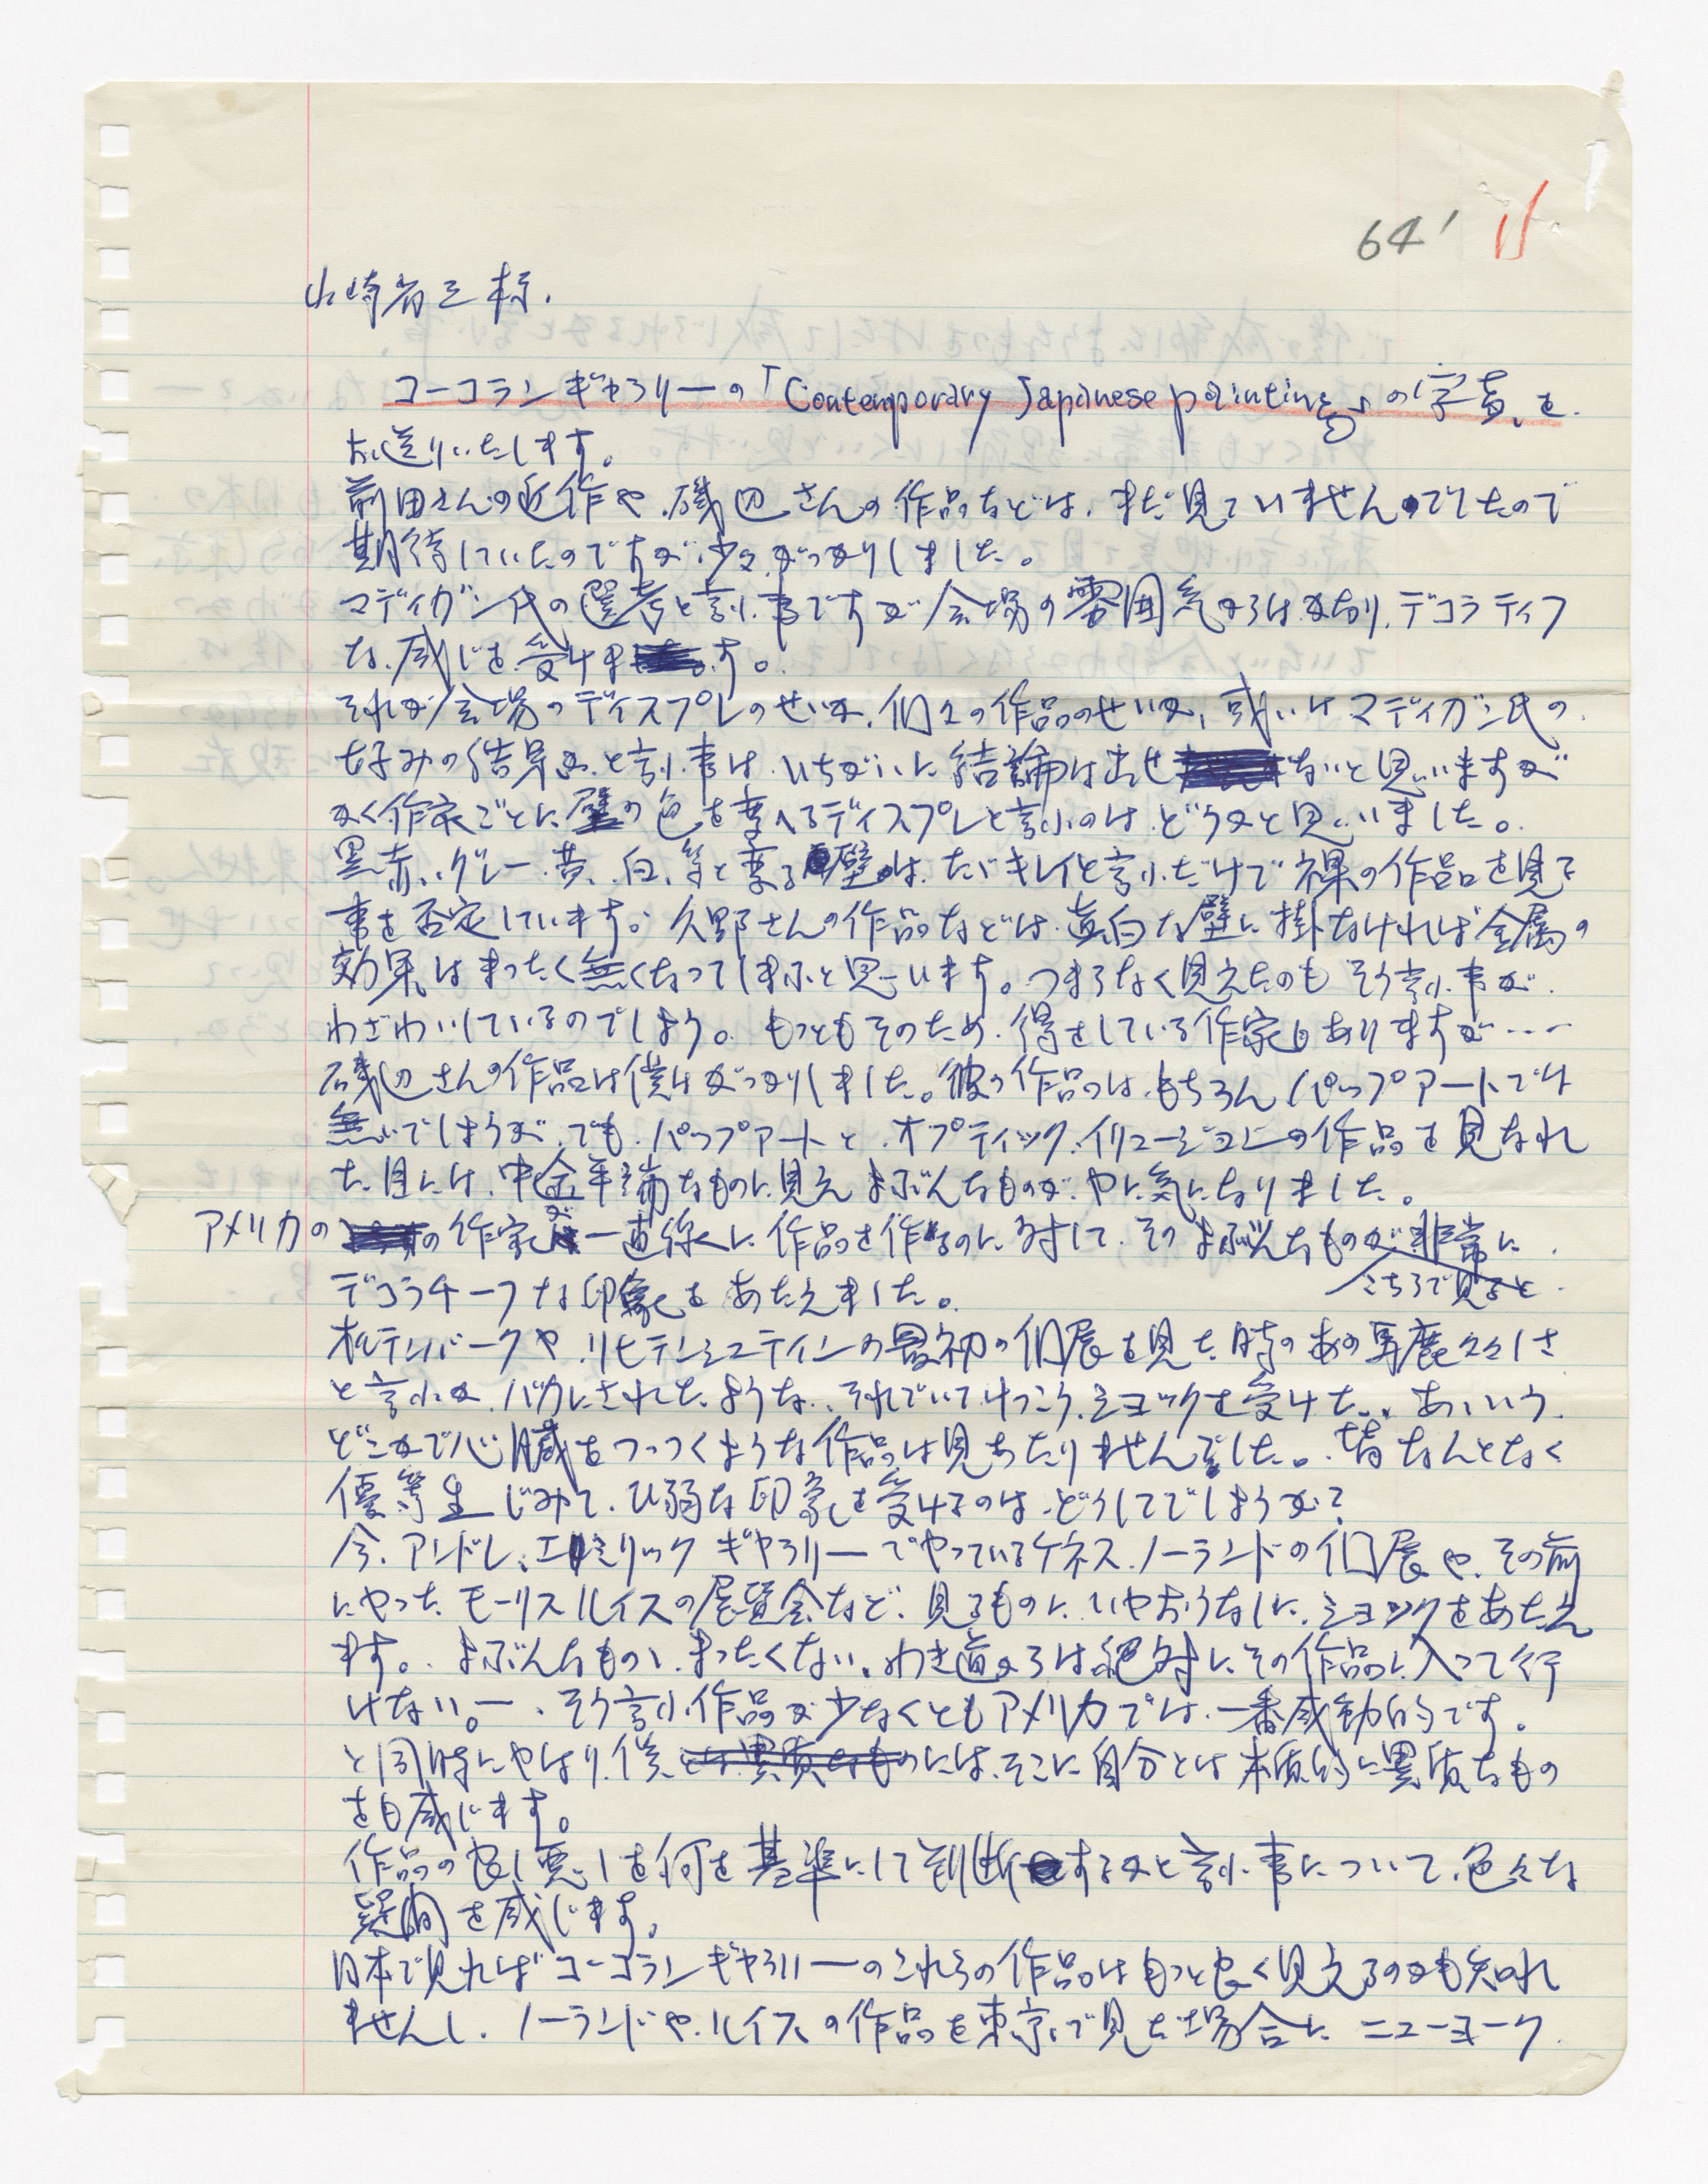 64' 11
山崎省三様.
コーコランギャラリーの「Contemporary Japanese painting」の写真、を
お送りいたします。
前田さんの近作や、磯辺さんの作品などは、まだ見ていませんでしたので
期待していたのですが、少々がっかりしました。
マディガン氏の選考と言ふ事ですが会場の雰囲気からはかなり、デコラティフ
な、感じを受けます。
それが会場のディスプレのせいか、個々の作品のせいか、或いはマディガン氏の
好みの結果か、と言ふ事は、いちがいに結論は出せないと思いますが
各作家ごとに壁の色を変へるディスプレと言ふのは、どうかと思いました。
黒、赤、グレー、黄、白、等と変る壁は、ただキレイと言ふだけで裸の作品を見る
事を否定しています。久野さんの作品などは、真白な壁に掛なければ金属の
効果はまったく無くなってしまふと思います。つまらなく見えたのもそう言ふ事が
わざわいしているのでしょう。もっともそのため、得をしている作家もありますが----
磯辺さんの作品には僕はがっかりしました。彼の作品は、もちろんパップアートでは
無いでしょうが、でも、パップアートと、オプティック、イリュージョンの作品を見なれ
た目には、中途半端なものに見え よぶんなものが、やに気になりました。
アメリカの作家が一直線に作品を作るのに対して、そのよぶんなものが、非常に
こちらで見ると
デコラチーフな印象をあたえました。
オルデンバーグや、リヒテンシュテインの最初の個展を見た、時のあの馬鹿々々しさ
と言ふか、バカにされたような、それでいてけっこう、ショックを受けた、あゝいう
どこかで心臓をつっつくような作品は見あたりませんでした。皆なんとなく
優等生じみて、ひ弱な印象を受けるのは、どうしてでしょうか?
今、アンドレ、エムリックギャラリーでやっているケネス、ノーランドの個展や、その前
にやった、モーリスルイスの展覧会など、見るものに、いやおうなしに、ショックをあたえ
ます。よぶんなもの、まったくない、わき道からは絶対にその作品に入って行
けない。ー、そう言ふ作品が少なくともアメリカでは、一番感動的です。
と同時にやはり、僕には、そこに自分とは本質的に異質なもの
をも感じます。
作品の良し悪しを何を基準にして判断するかと言ふ事について、色々な
疑問を感じます。
日本で見ればコーコランギャラリーのこれらの作品はもっと良く見えるのかも知れ
ませんし、ノーランドや、ルイスの作品を東京で見た場合に ニューヨーク